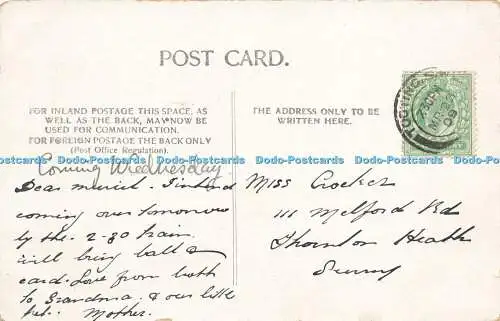 POST CARD.
FOR INLAND POSTAGE THIS SPACE, AS
WELL AS THE BACK, MAY NOW BE
USED FOR COMMUNICATION.
FOR FOREIGN POSTAGE THE BACK ONLY
(Post Office Regulation).
THE ADDRESS ONLY TO BE
WRITTEN HERE.
TOOTING
Dodo-Postcards Dodo-Postcards Dodo-Postcards Dodo-Postcards Dodo-Postcards
Coming Wednesday
Dear Muriel.
coming over tomorrow
by the 2-30 train
will bring
card. Love from both
to Grandma & our little
pet. Mother.
Miss Crocker
111 Melford Rd
Thornton Heath
Surrey